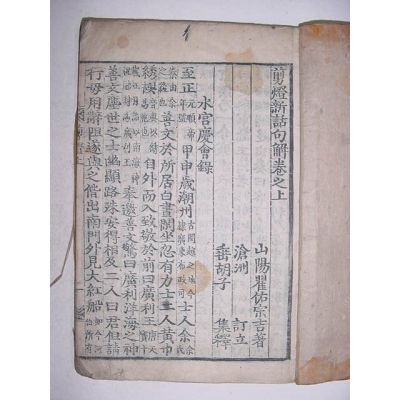 剪燈新話句解卷之上
山陽瞿佑宗吉著
滄洲 訂立
垂胡子 集釋
水宮慶會錄
至正元順帝年號甲申歲潮州古閩越之地今隸廣東布政司士人余余氏
善文於所居白晝閒坐忽有力士二人黃巾
繡襖自外而入致敬於前曰廣利王唐天
奉邀善文驚曰廣利洋海之神
善文塵世之士幽顯路殊安得相及二人曰君但請
行毋用辭阻遂與之偕出南門外見大紅船